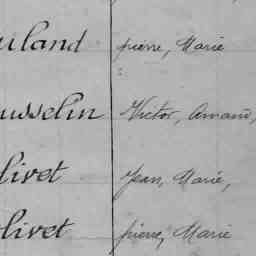 uiland pierre, Marie
usselin Victor, Amand,
livet Jean, Marie,
livet pierre, Marie